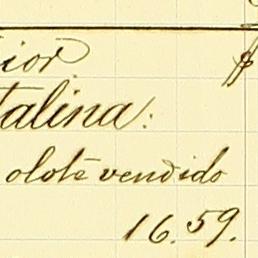 ior $
talina:
olote vendido
16.59.